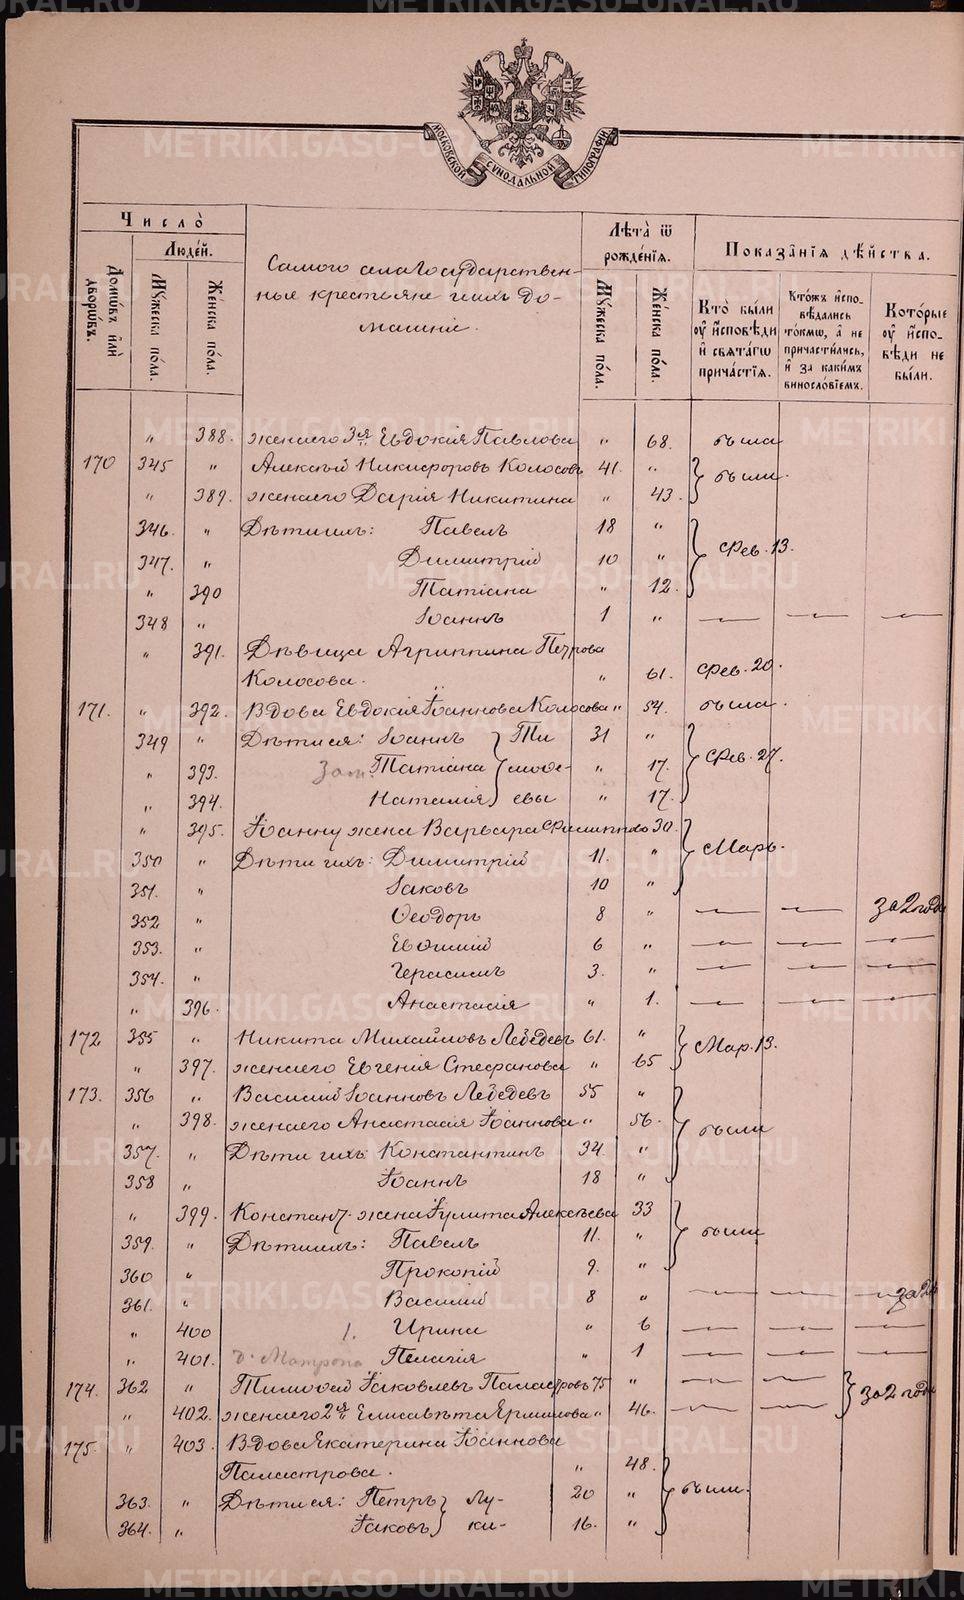 МОСКОВСКОЙ СѴНОДАЛЬНОЙ ТИПОГРАФІИ
Число̀
Людей.
Домѡвъ и҆лѝ дворѡвъ.
Мꙋжеска по́ла.
Же́нска по́ла.
Самого села Государствен-
ные крестьяне и ихъ до-
машніе.
Лѣ́та ѿ рожде́нїѧ.
Мꙋжеска по́ла.
Же́нска по́ла.
Показа̑нїѧ дѣ́йства.
Кто̀ бы́ли оу҆ и҆́сповѣди и҆ свѧта́гѡ прича́стїѧ.
Кто́жъ и҆спо-вѣдались то́кмѡ, а҆ не причасти́лись, и҆ за каки́мъ виносло́вїемъ.
Кото́рые оу҆ и҆́спо-вѣди не бы́ли.
" 388. жена его 3я Евдокія Павлова " 68. была
170 345 " Алексѣй Никифоровъ Колосовъ 41. " были.
" 389. жена его Дарія Никитина " 43.
346. " Дѣти ихъ: Павелъ 18 "
347. " Димитрій 10 " Фев. 13.
" 390 Татіана " 12.
348 " Іоаннъ 1 "
" 391. Дѣвица Агриппина Петрова
Колосова. " 61. Фев. 20.
171. " 392. Вдова Евдокія Іоаннова Колосова " 54. была.
349 " Дѣти ея: Іоаннъ Ти 31 "
" 393. Зам. Татіана моѳе- " 17. Фев. 27.
" 394. Наталія евы " 17.
" 395. Іоанну жена Варвара Филиппова 30.
350 " Дѣти ихъ: Димитрій 11. " Марь.
351. " Іаковъ 10 "
352 " Ѳеодоръ 8 " за 2 года
353. " Евѳимій 6 "
354. " Герасимъ 3. "
" 396. Анастасія " 1.
172 355 " Никита Михайловъ Лебедевъ 61. "
" 397. жена его Евгенія Стефанова " 65 Мар. 13.
173. 356 " Василій Іоанновъ Лебедевъ 55 "
" 398. жена его Анастасія Іоаннова " 56. были
357. " Дѣти ихъ: Константинъ 34. "
358 " Іоаннъ 18 "
" 399. Констант. жена Іулита Алексѣева 33
359. " Дѣти ихъ: Павелъ 11. " были
360 " Прокопій 9. "
361. " Василій 8 " за 2
" 400 1. Ирина " 6
" 401. Матрона Пелагія " 1
174. 362 " Тимоѳей Іаковлевъ Паластровъ 75 "
" 402. жена его 2я Елисавѣта Ермилова " 46. за 2 года
175. " 403. Вдова Екатерина Іоаннова
Паластрова. " 48.
363. " Дѣти ея: Петръ Лу- 20 " были.
364. " Іаковъ ки- 16. "
METRIKI.GASO-URAL.RU